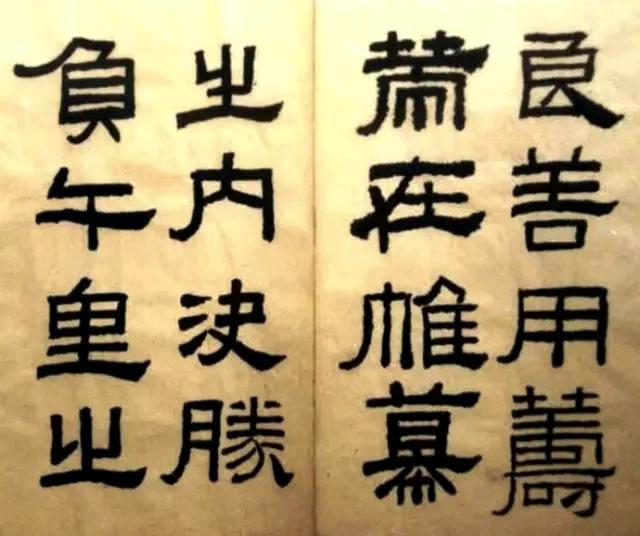 良善用籌
策在帷幕
之內決勝
負千里之